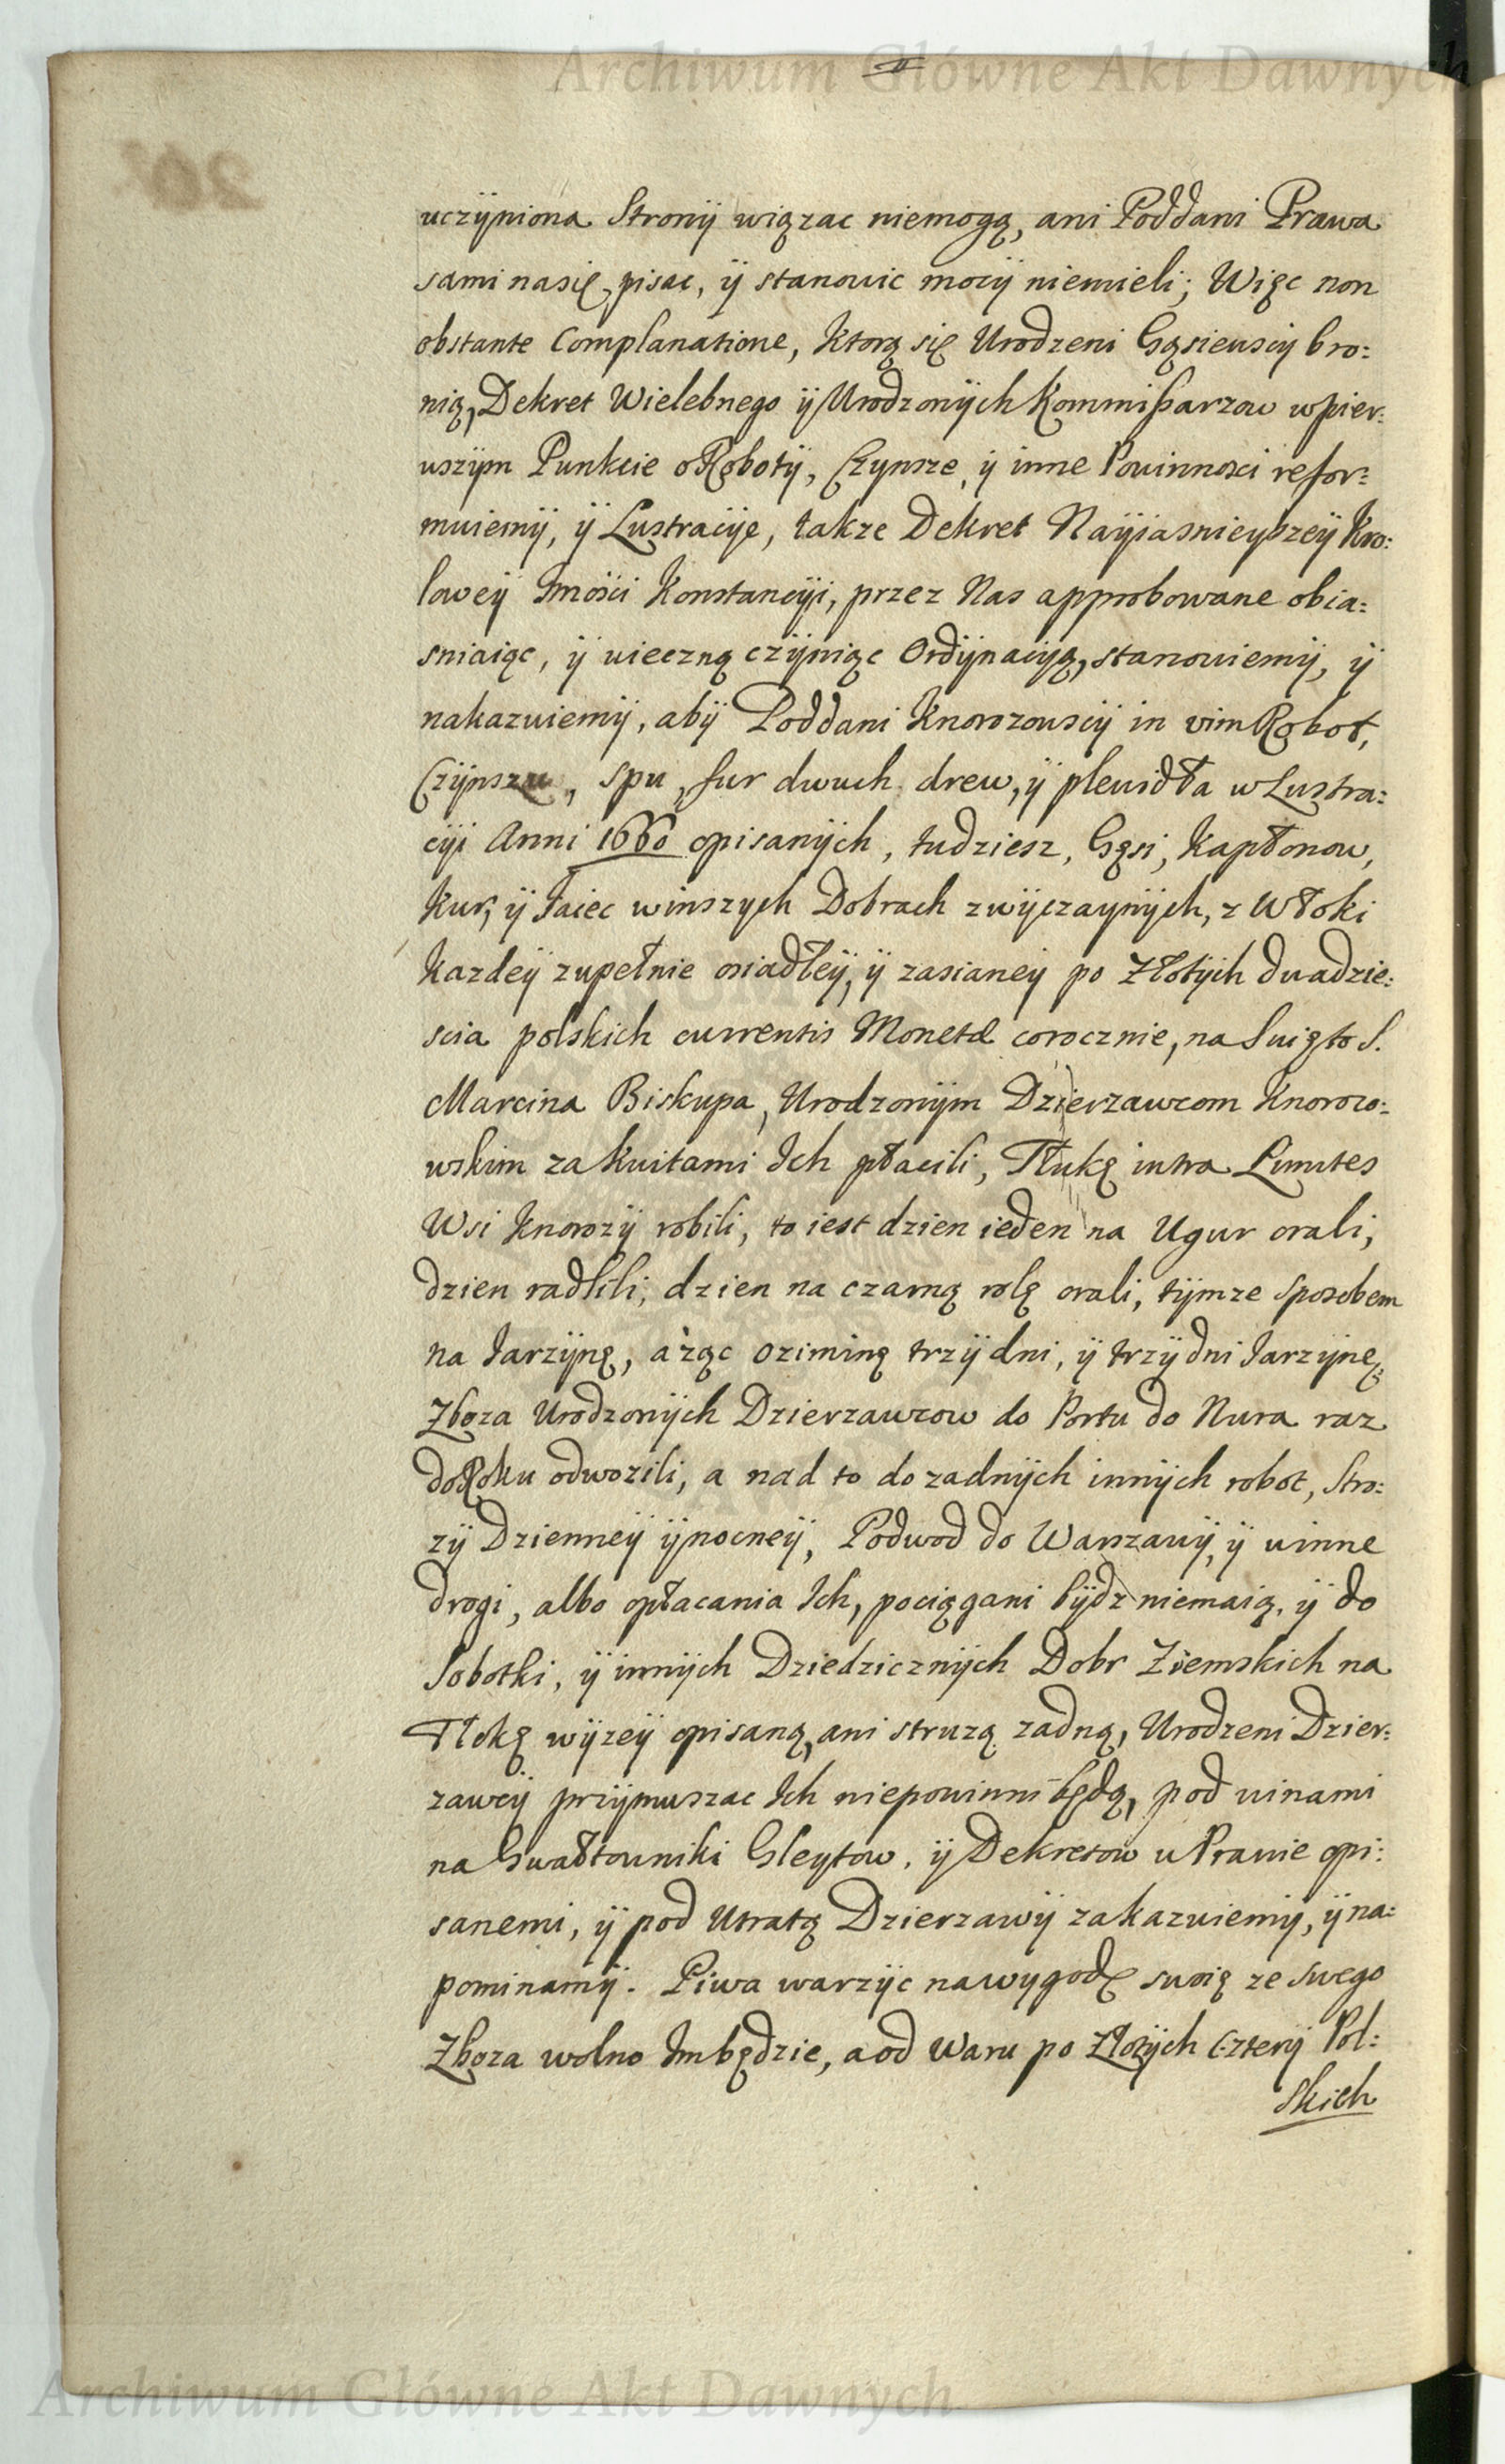 Archiwum Główne Akt Dawnych
uczÿniona Stronÿ wiązac niemogą, ani Poddani Prawa
sami nasię pisac, ÿ stanowic mocÿ niemieli; Więc non
obstante Complanatione, Ktorą się Urodzeni Gąsiewscÿ bro:
nią, Dekret Wielebnego ÿ Urodzonÿch Kommißarzow wpier:
wszÿm Punkcie oRobotÿ, Czynsze, ÿ inne Powinnosci refor:
muiemÿ, ÿ Lustracÿe, takze Dekret Naÿiasnieyszeÿ Kro:
loweÿ Jmości Konstancÿi, przez Nas approbowane obia:
sniaiąc, ÿ wieczną czÿniąc Ordÿnacÿą, stanowiemÿ, ÿ
nakazuiemÿ, abÿ Poddani Knorozowscÿ in vim Robot,
Czÿnszu, spu, fur dwuch drew, ÿ plewidła w Lustra:
cÿi Anni 1660 opisanÿch, tudziesz, Gęsi, Kapłonow,
Kur, ÿ Jaiec winszych Dobrach zwÿczaynÿch, z Włoki
Kazdeÿ zupełnie osiadłeÿ, ÿ zasianeÿ po Złotÿch dwadzie:
scia polskich currentis Monetæ corocznie, na Swięto S.
Marcina Biskupa, Urodzonÿm Dzierzawcom Knorozo:
wskim za Kwitami Ich płacili, Tłukę intra Limites
Wsi Knorozÿ robili, to iest dzien ieden na Ugur orali,
dzien radlili, dzien na czarną rolę orali, tÿmze sposobem
na Jarzÿnę, a żąc oziminę trzÿ dni, ÿ trzÿ dni Jarzÿnę,
Zboza Urodzonÿch Dzierzawcow do Portu do Nura raz
doRoku odwozili, a nad to do zadnÿch innÿch robot, Stro:
zÿ Dzienneÿ ÿ nocneÿ, Podwod do Warszawÿ, ÿ winne
drogi, albo opłacania Ich, pociągani bÿdz niemaią, ÿ do
Sobotki, ÿ innÿch Dziedzicznÿch Dobr Ziemskich na
Tłokę wÿzeÿ opisaną, ani struzą zadną, Urodzeni Dzier:
zawcÿ przÿmuszac Ich niepowinni będą, pod winami
na Gwałtowniki Gleytow, ÿ Dekretow w Prawie opi:
sanemi, ÿ pod Utratą Dzierzawÿ zakazuiemÿ, ÿ na:
pominamÿ. Piwa warzÿc nawygodę swoię ze swego
Zboza wolno Jm będzie, a od Waru po Złotÿch Czterÿ Pol:
skich
Archiwum Główne Akt Dawnych